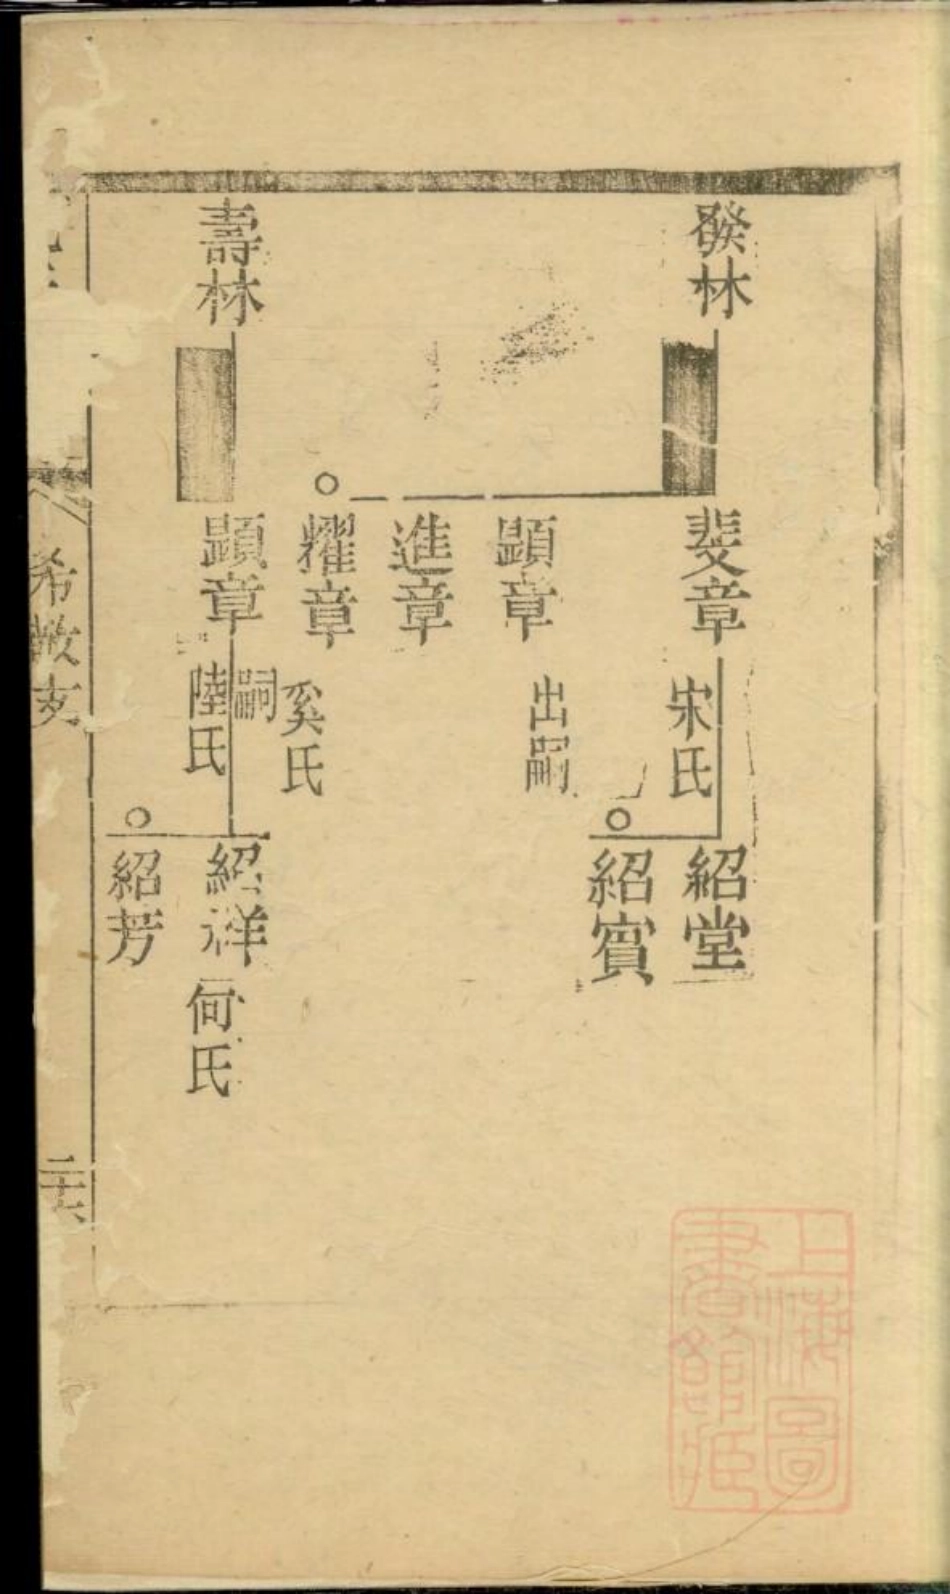 發林
斐章
宋氏
紹堂
紹賓
顯章
出嗣
進章
耀章
奚氏
壽林
顯章
嗣
陸氏
紹祥
何氏
紹芳
希敕支
二十六
上海圖
書館藏